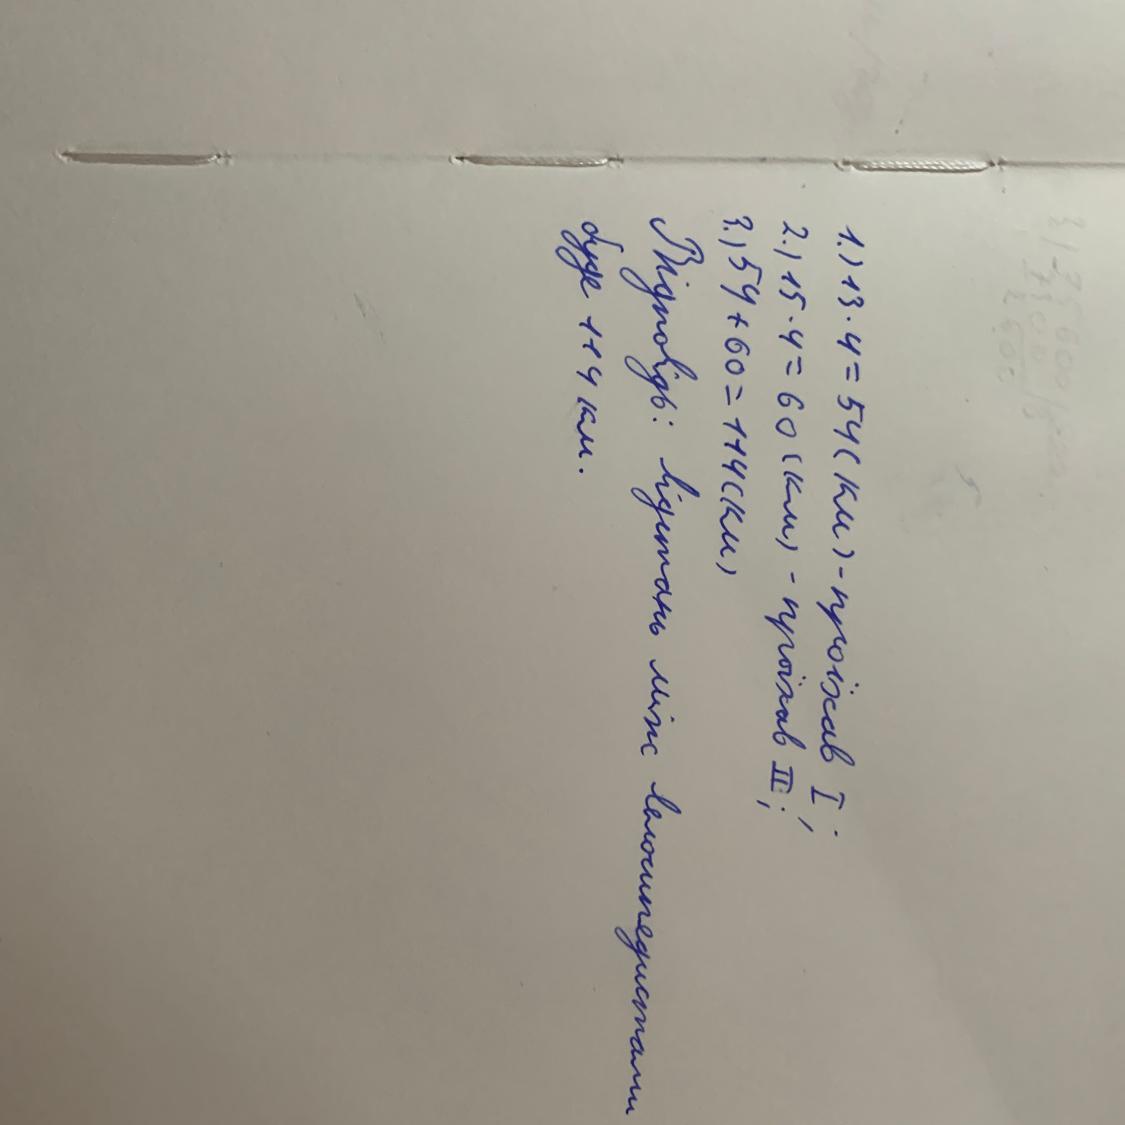 1.) 13·4=54(км)-проїхав I;
2.) 15·4=60(км)-проїхав II;
3.) 54+60=114(км)
Відповідь: відстань між велосипедистами
буде 114 км.